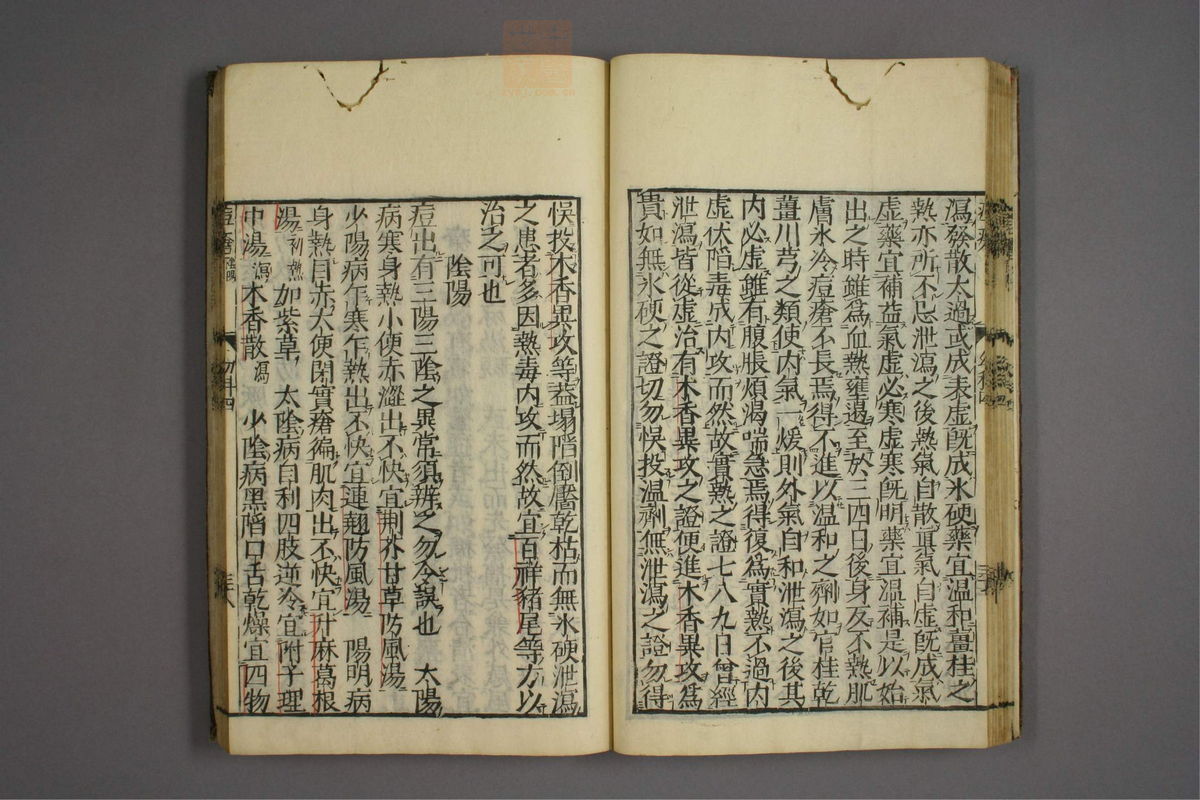 瀉發散太過或成表虛既成氷硬藥宜溫和薑桂之
熱亦所不忌泄瀉之後熱氣自散眞氣自虛既成氣
虛藥宜補益氣虛必寒虛寒既明藥宜溫補是以始
出之時雖爲血熱壅遏至於三四日後身反不熱肌
膚氷冷痘瘡不長焉得不進以温和之劑如官桂乾
薑川芎之類使内氣一煖則外氣自和泄瀉之後其
内必虛雖有腹脹煩渴喘急焉得復爲實熱不過内
虛伏陷毒成内攻而然故實熱之證七八九日曾經
泄瀉皆從虛治有木香異攻之證便進木香異攻爲
貴如無氷硬之證切勿悞投温劑無泄瀉之證勿得
悞投木香異攻等葢塲陷倒靨乾枯而無氷硬泄瀉
之患者多因熱毒内攻而然故宜百祥豬尾等方以
治之可也
陰陽
痘出有三陽三陰之異常須辨之勿令誤也 太陽
病寒身熱小便赤澀出不快宜荆芥甘草防風湯
少陽病乍寒乍熱出不快宜連翹防風湯 陽明病
身熱目赤大便閉實瘡徧肌肉出不快宜升麻葛根
湯利熱如紫草 太陰病自利四肢逆冷宜附子理
中湯瀉木香散瀉 少陰病黑陷口舌乾燥宜四物
痘瘡 陰陽 幼科四 三八